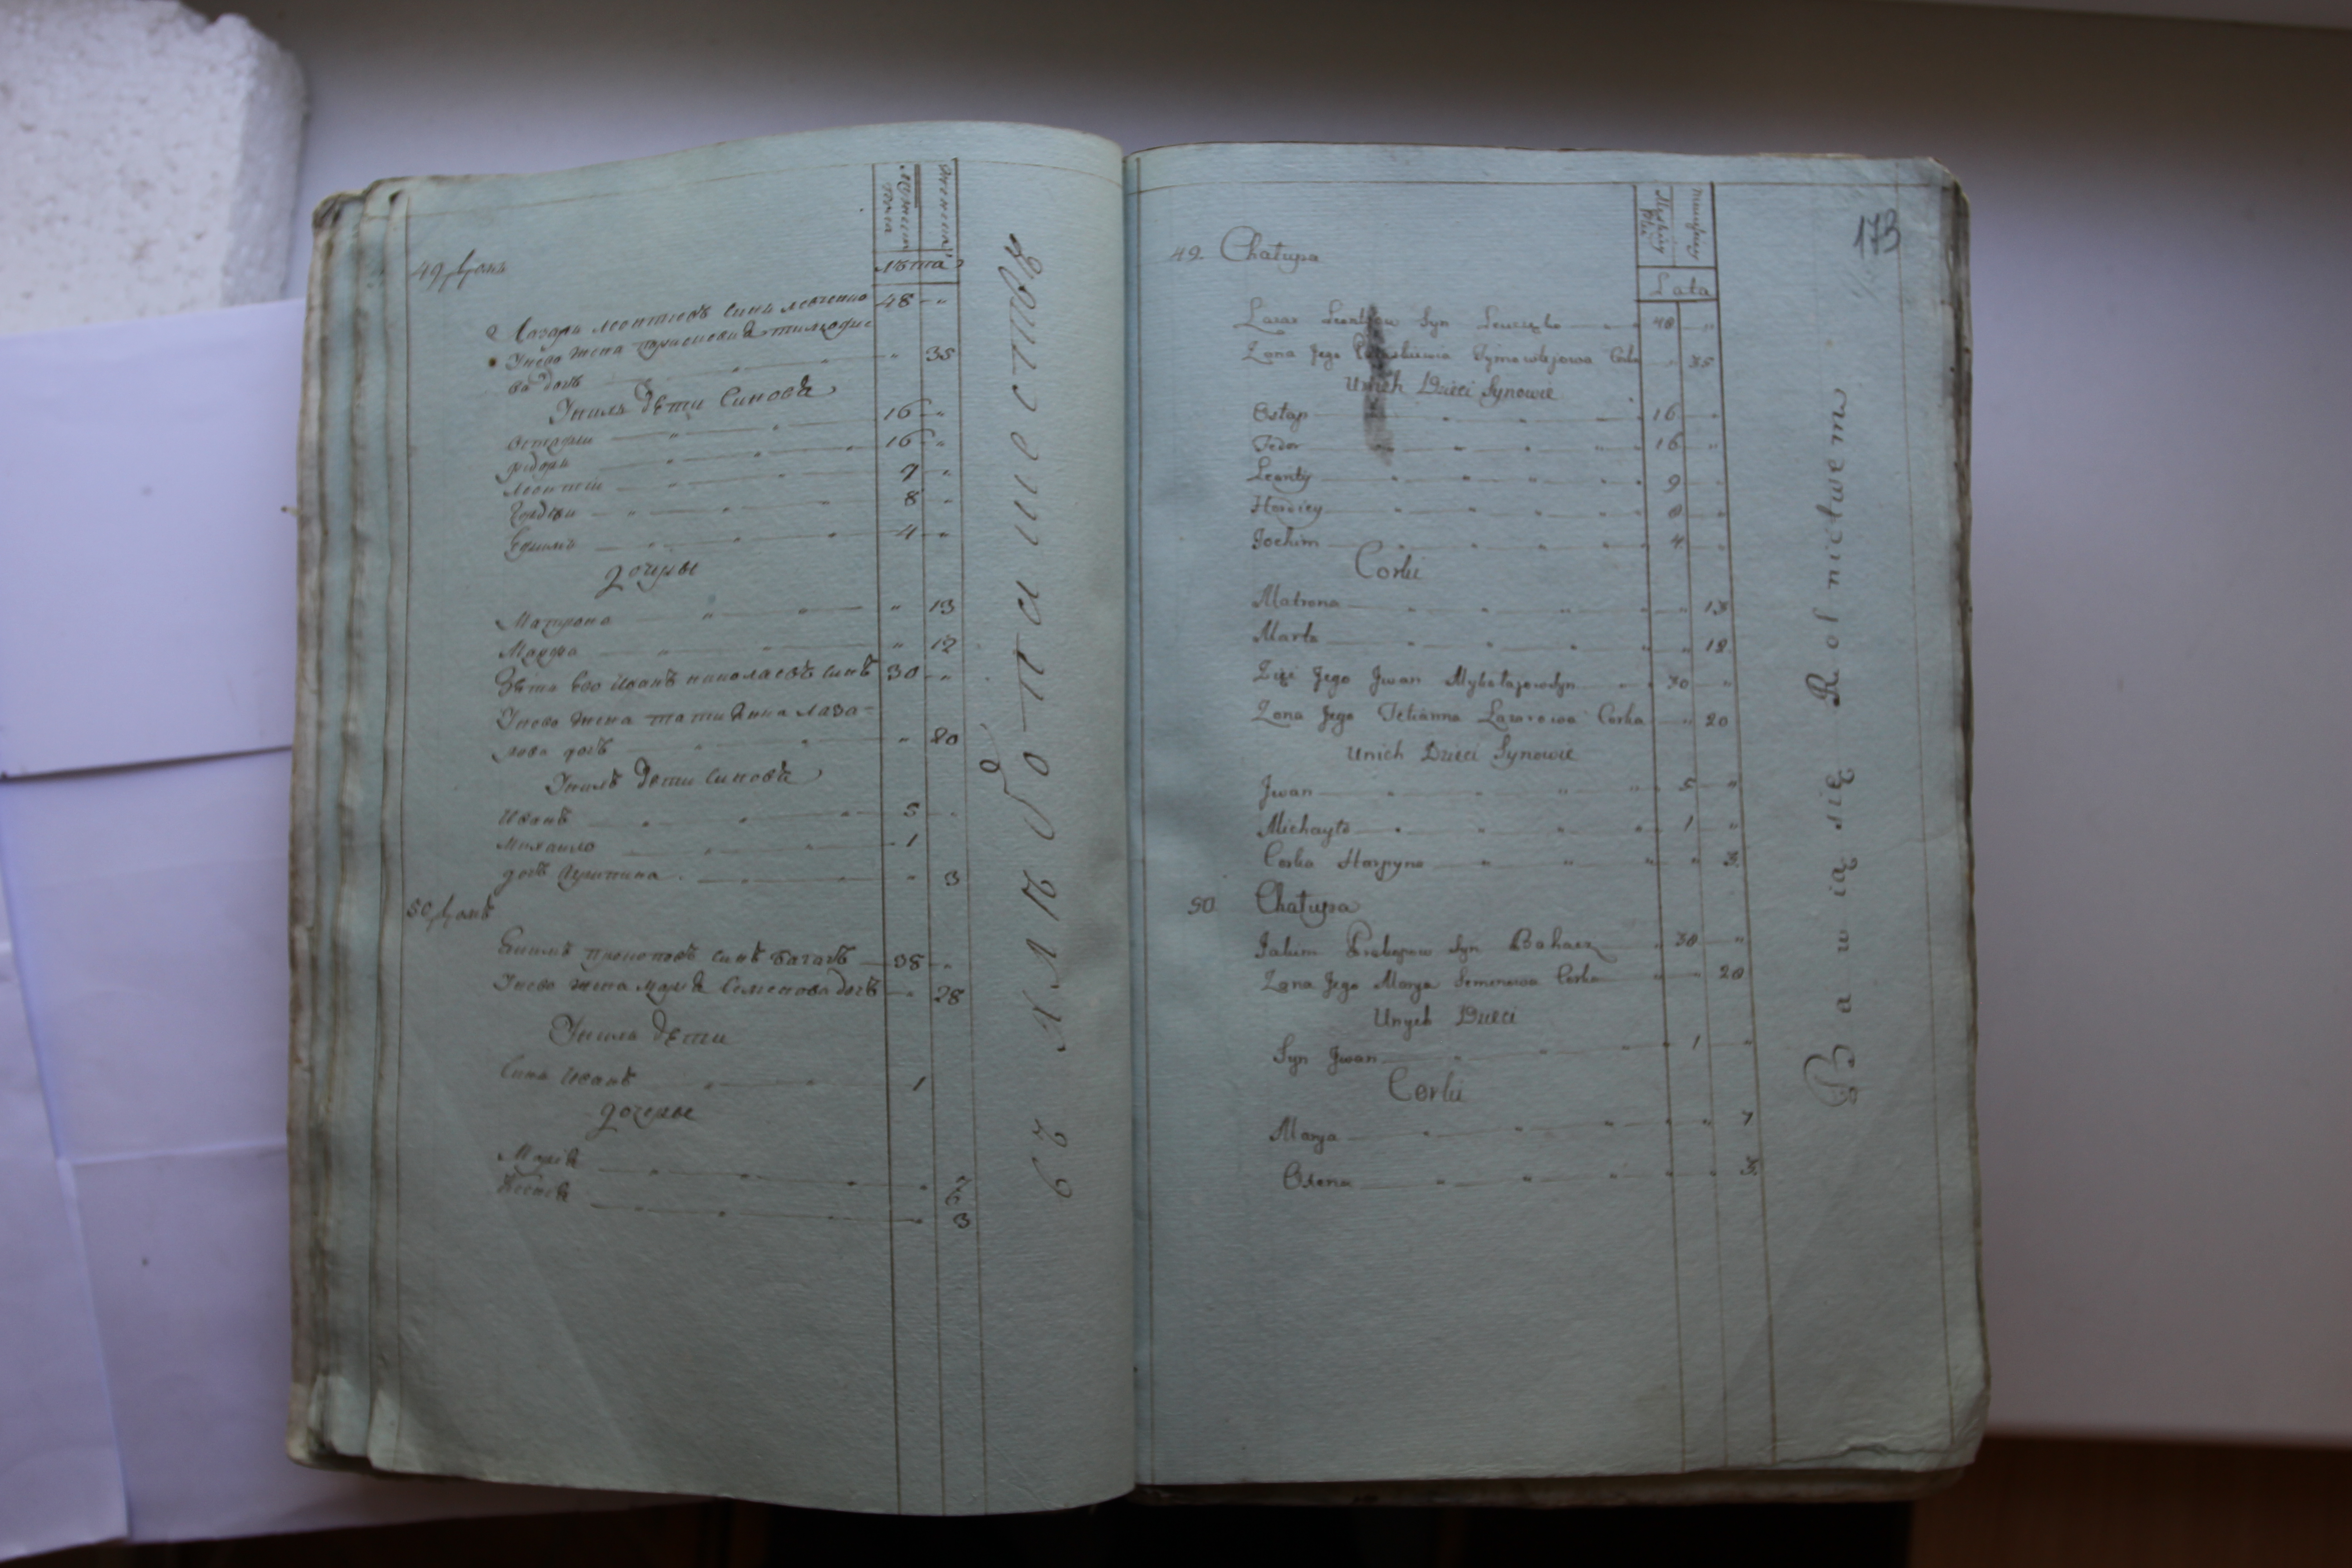 Мужеска пола
Женска
Лѣта
49 домъ
Лазарь леонтиевъ синъ левченко 48 "
Унево жена параскевиѧ тимофие-
ва дочь " 35
Унихъ дѣти Синовѧ
Остафии 16 "
федоръ 16 "
леонтий 9 "
Гордѣи 8 "
Ефимъ 4 "
дочерѣ
Матрона " 13
Марфа " 12
Зять Ево Иванъ николаевъ синъ 30 "
Унево жена татиѧнна лаза-
рова дочь " 20
Унихъ дѣти синовѧ
Иванъ 5 "
Михаило 1
дочь Агрипина " 3
50 домъ
Екимъ прокоповъ синъ багачъ 38 "
Унево жена мариѧ Семенова дочъ " 28
Унихъ дѣти
Синъ Иванъ 1
дочерѣ
Мариѧ " 7
" 3
въ хлѣбопашествѣ
173
Męskiey Płci
Lata
49. Chałupa
Lazar Leontjow Syn Lewczęko 48 "
Zona Jego Paraskiewia Tymowiejowa Corka " 35
Unich Dzieci Synowie
Ostap 16 "
Fedor 16 "
Leonty 9 "
Hordiey 8 "
Jochim 4 "
Corki
Matrona " 13
Marta " 12
Zięć Jego Jwan Mykołajowsyn 30 "
Zona Jego Tetianna Lazarowa Corka " 20
Unich Dzieci Synowie
Jwan 5 "
Michayło 1 "
Corka Harpyna " 3.
50 Chałupa
Jakim Prokopow Syn Bohacz 38 "
Zona Jego Marya Semenowa Corka " 28
Unych Dzieci
Syn Jwan 1 "
Corki
Marya " 7
Oxena " 3.
Bawią się Rolnictwem